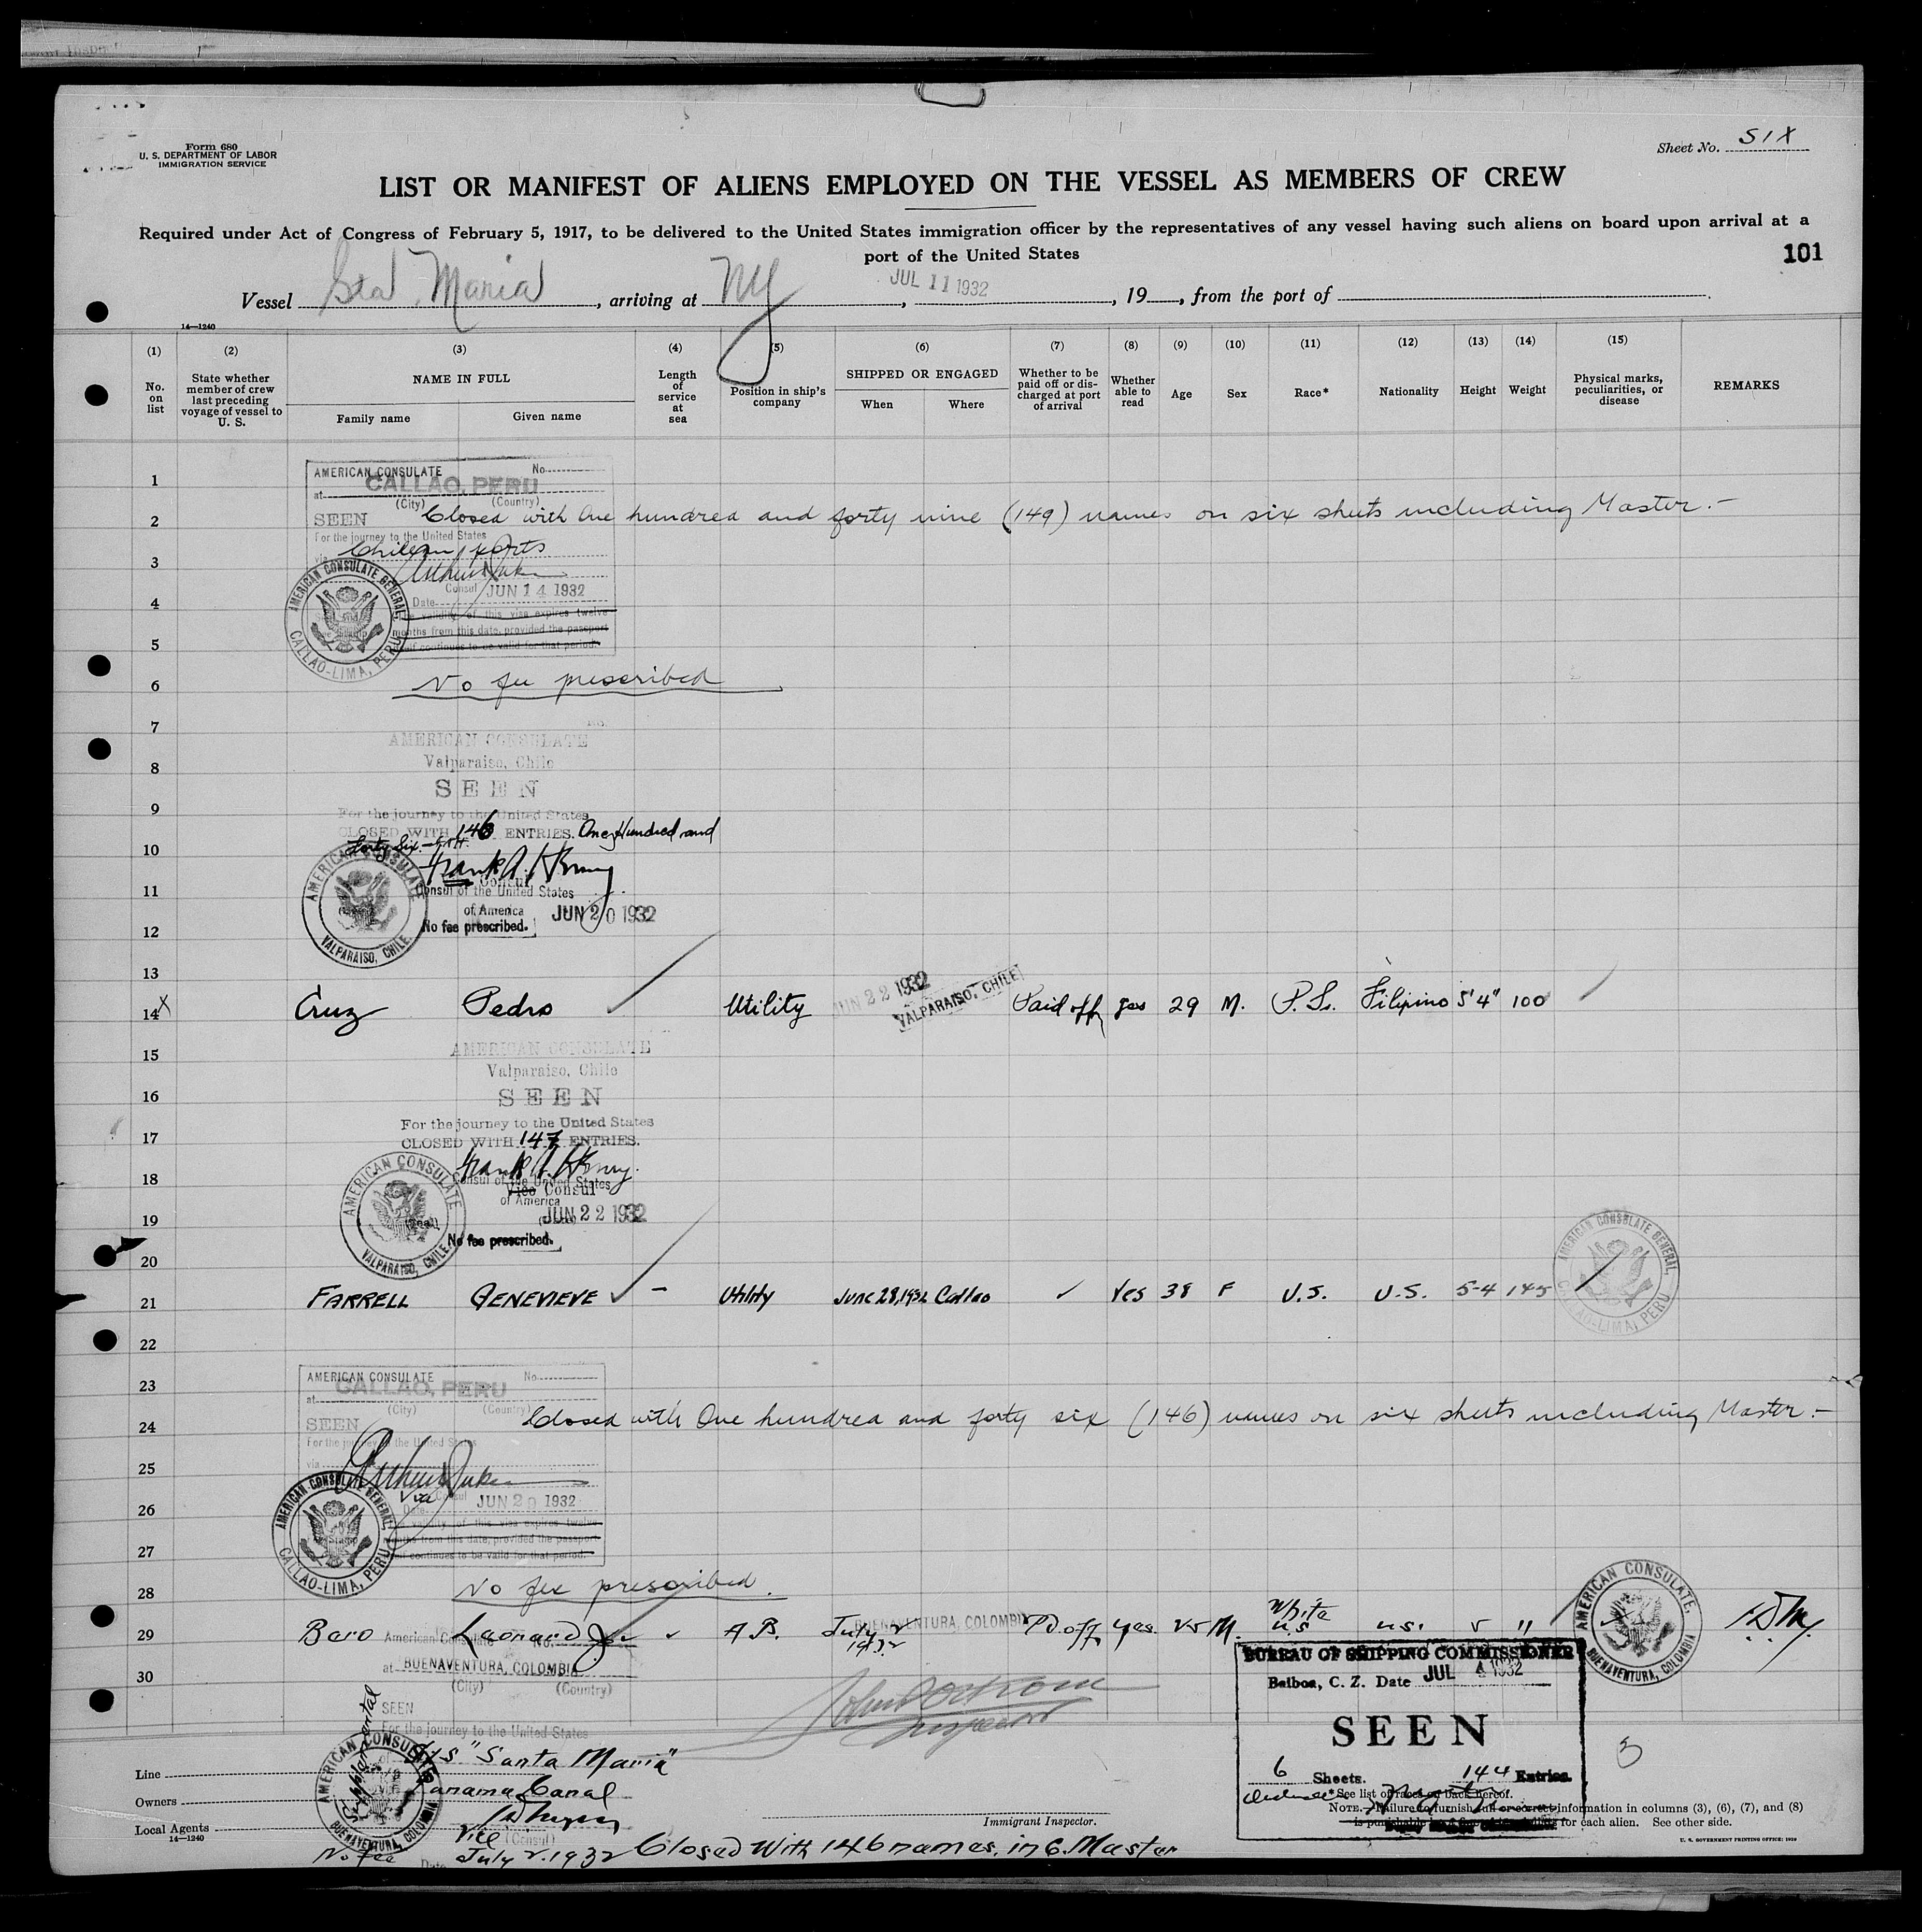 Form 680
U. S. DEPARTMENT OF LABOR
IMMIGRATION SERVICE
Sheet No. SIX
LIST OR MANIFEST OF ALIENS EMPLOYED ON THE VESSEL AS MEMBERS OF CREW
Required under Act of Congress of February 5, 1917, to be delivered to the United States immigration officer by the representatives of any vessel having such aliens on board upon arrival at a
port of the United States
101
Vessel Sta Maria, arriving at NY, JUL 11 1932, 19__, from the port of
14—1240
(1) (2) (3) (4) (5) (6) (7) (8) (9) (10) (11) (12) (13) (14) (15)
No. on list
State whether member of crew last preceding voyage of vessel to U. S.
NAME IN FULL
Family name
Given name
Length of service at sea
Position in ship's company
SHIPPED OR ENGAGED
When
Where
Whether to be paid off or discharged at port of arrival
Whether able to read
Age
Sex
Race*
Nationality
Height
Weight
Physical marks, peculiarities, or disease
REMARKS
1
AMERICAN CONSULATE No.
at CALLAO, PERU
(City) (Country)
2
SEEN Closed with One hundred and forty nine (149) names on six sheets including Master.-
For the journey to the United States
via Chilean ports
3
Consul
Date JUN 14 1932
4
The validity of this visa expires twelve
months from this date, provided the passport
5
itself continues to be valid for that period.
AMERICAN CONSULATE GENERAL, CALLAO-LIMA, PERU
6
No fee prescribed
7
No.
AMERICAN CONSULATE
8
Valparaiso, Chile
SEEN
9
For the journey to the United States
CLOSED WITH 146 ENTRIES. One Hundred and
10
Forty Six
11
Consul
Consul of the United States
of America
JUN 20 1932
12
No fee prescribed.
AMERICAN CONSULATE VALPARAISO, CHILE
13
14 X Cruz Pedro Utility JUN 22 1932 VALPARAISO, CHILE Paid off yes 29 M. P.I. Filipino 5'4" 100
15
AMERICAN CONSULATE
Valparaiso, Chile
16
SEEN
For the journey to the United States
17
CLOSED WITH 147 ENTRIES.
18
Consul of the United States
Vice Consul
of America
19
JUN 22 1932
(Seal)
No fee prescribed.
AMERICAN CONSULATE VALPARAISO, CHILE
20
21 FARRELL GENEVIEVE ✓ - Utility June 28, 1932 Callao ✓ Yes 38 F U.S. U.S. 5-4 145
AMERICAN CONSULATE GENERAL, CALLAO-LIMA, PERU
22
23
AMERICAN CONSULATE No.
at CALLAO, PERU
(City) (Country)
24
SEEN Closed with One hundred and forty six (146) names on six sheets including Master.-
For the journey to the United States
via
25
Vice Consul
Date JUN 29 1932
26
The validity of this visa expires twelve
months from this date, provided the passport
27
itself continues to be valid for that period.
AMERICAN CONSULATE GENERAL, CALLAO-LIMA, PERU
28
No fee prescribed.
29 Bero Leonard Jr ✓ A.B. July 2 1932 BUENAVENTURA, COLOMBIA Pd off yes 25 M. White U.S. U.S. 5
AMERICAN CONSULATE, BUENAVENTURA, COLOMBIA
American Consulate No.
at BUENAVENTURA, COLOMBIA
30
(City) (Country)
SEEN
For the journey to the United States
Supplemental
S/S "Santa Maria"
Panama Canal
Vice (Consul)
No fee
Date July 2, 1932
AMERICAN CONSULATE BUENAVENTURA, COLOMBIA
Closed With 146 names, in 6. Master
Inspector
BUREAU OF SHIPPING COMMISSIONER
Balboa, C. Z. Date JUL 4 1932
SEEN
6 Sheets. 144 Entries.
3
Line
Owners
Local Agents
14—1240
Immigrant Inspector.
*See list of races on back hereof.
NOTE.—Failure to furnish full or correct information in columns (3), (6), (7), and (8)
is punishable for each alien. See other side.
U. S. GOVERNMENT PRINTING OFFICE: 1929